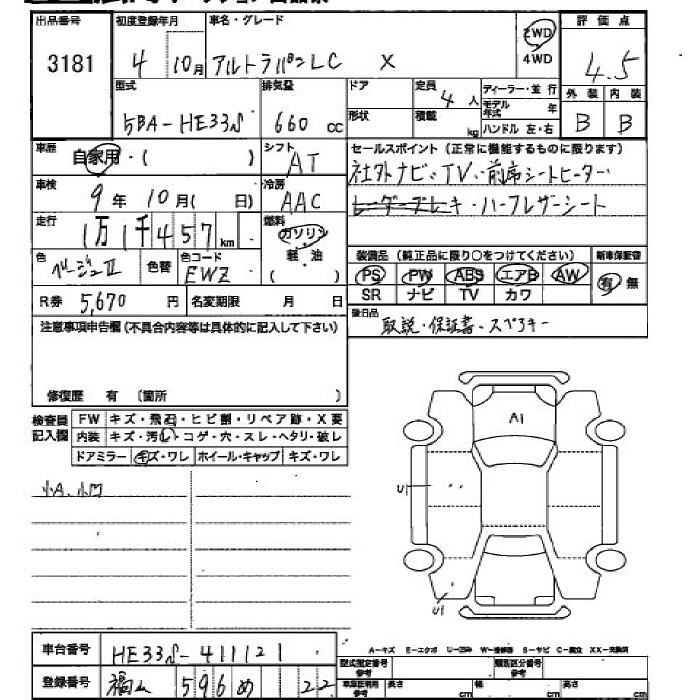 出品番号
3181
初度登録年月
4 年 10月
車名・グレード
アルトラパンLC X
2WD
4WD
評価点
4.5
外装 内装
B B
型式
5BA-HE33S
排気量
660 cc
ドア
形状
定員
4 人
積載
kg
ディーラー・並行
モデル年式 年
ハンドル 左・右
車歴
自家用・( )
シフト
AT
車検
9年 10月( 日)
冷房
AAC
走行
1万1千457 km
燃料
ガソリン
軽・油
色
ベージュⅡ
色替
色コード
EWZ
R券 5,670 円
名変期限 月 日
セールスポイント(正常に機能するものに限ります)
社外ナビ・TV・前席シートヒーター
レーダーブレーキ・ハーフレザーシート
装備品(純正品に限り〇をつけてください)
PS PW ABS エアB AW
SR ナビ TV カワ
新車保証書
有 無
後日品
取説・保証書・スペアキー
注意事項申告欄(不具合内容等は具体的に記入して下さい)
修復歴 有 (箇所 )
検査員記入欄
FW キズ・飛石・ヒビ割・リペア跡・X要
内装 キズ・汚し・コゲ・穴・スレ・ヘタリ・破レ
ドアミラー キズ・ワレ ホイール・キャップ キズ・ワレ
小A、小凹
A1
U1
U1
車台番号
HE33S-411121
登録番号
596め 22
A-キズ E-エクボ U-凹み W-補修跡 S-サビ C-腐食 XX-交換済
型式指定番号 参考
類別区分番号 参考
車庫証明用 参考
長さ cm
幅 cm
高さ cm